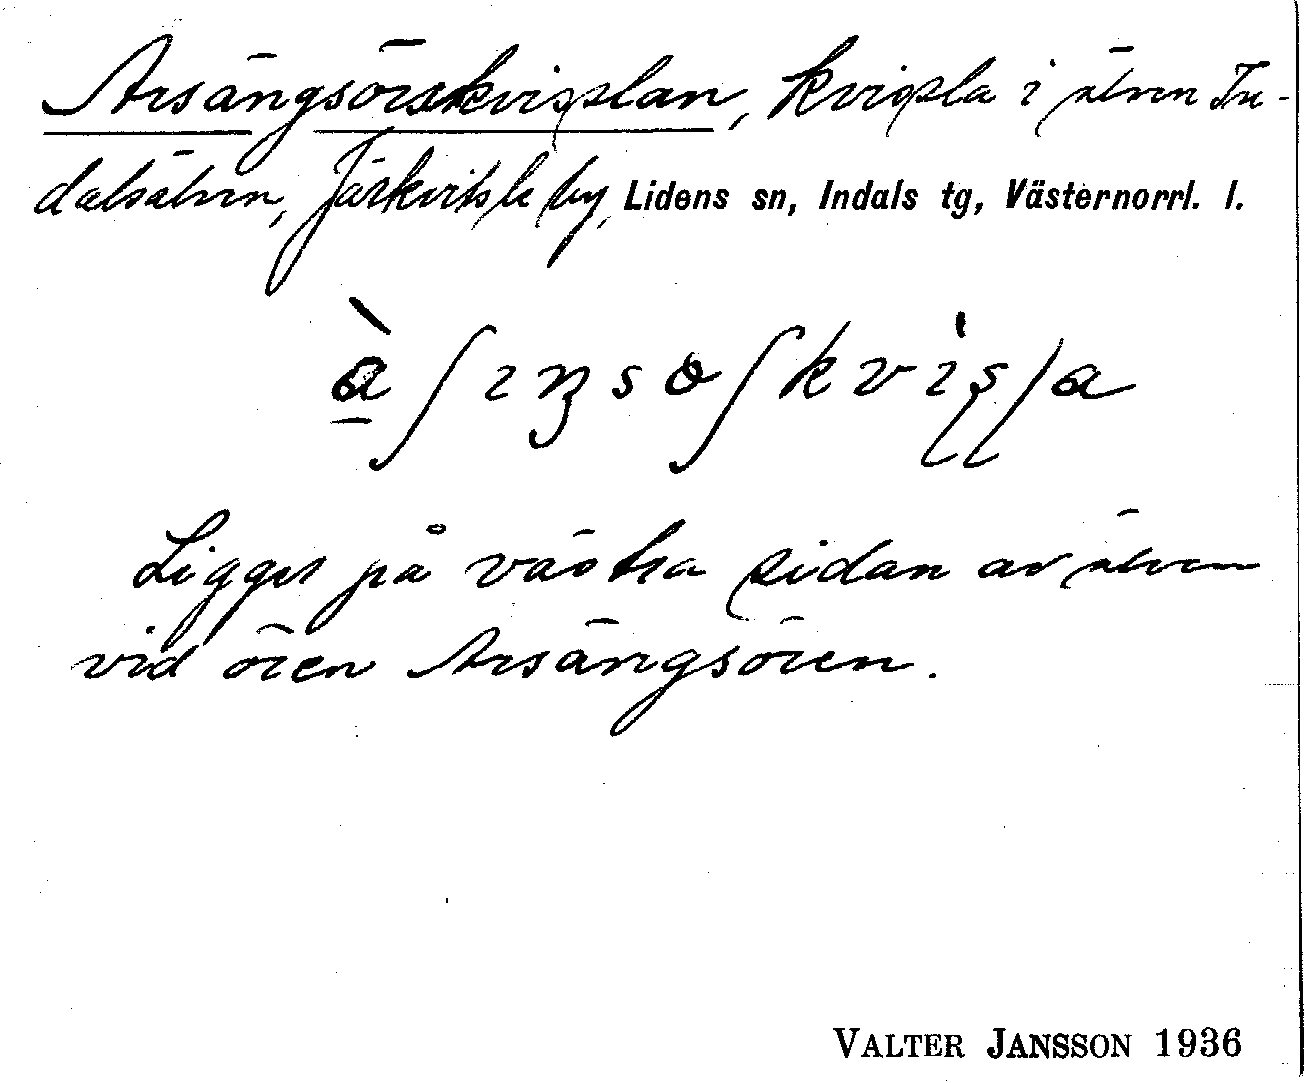 Arsängsörskvisslan, kvissla i älven In-
dalsälven, Järkvitsle by, Lidens sn, Indals tg, Västernorrl. l.
Ligger på västra sidan av älven
vid ören Arsängsören.
VALTER JANSSON 1936